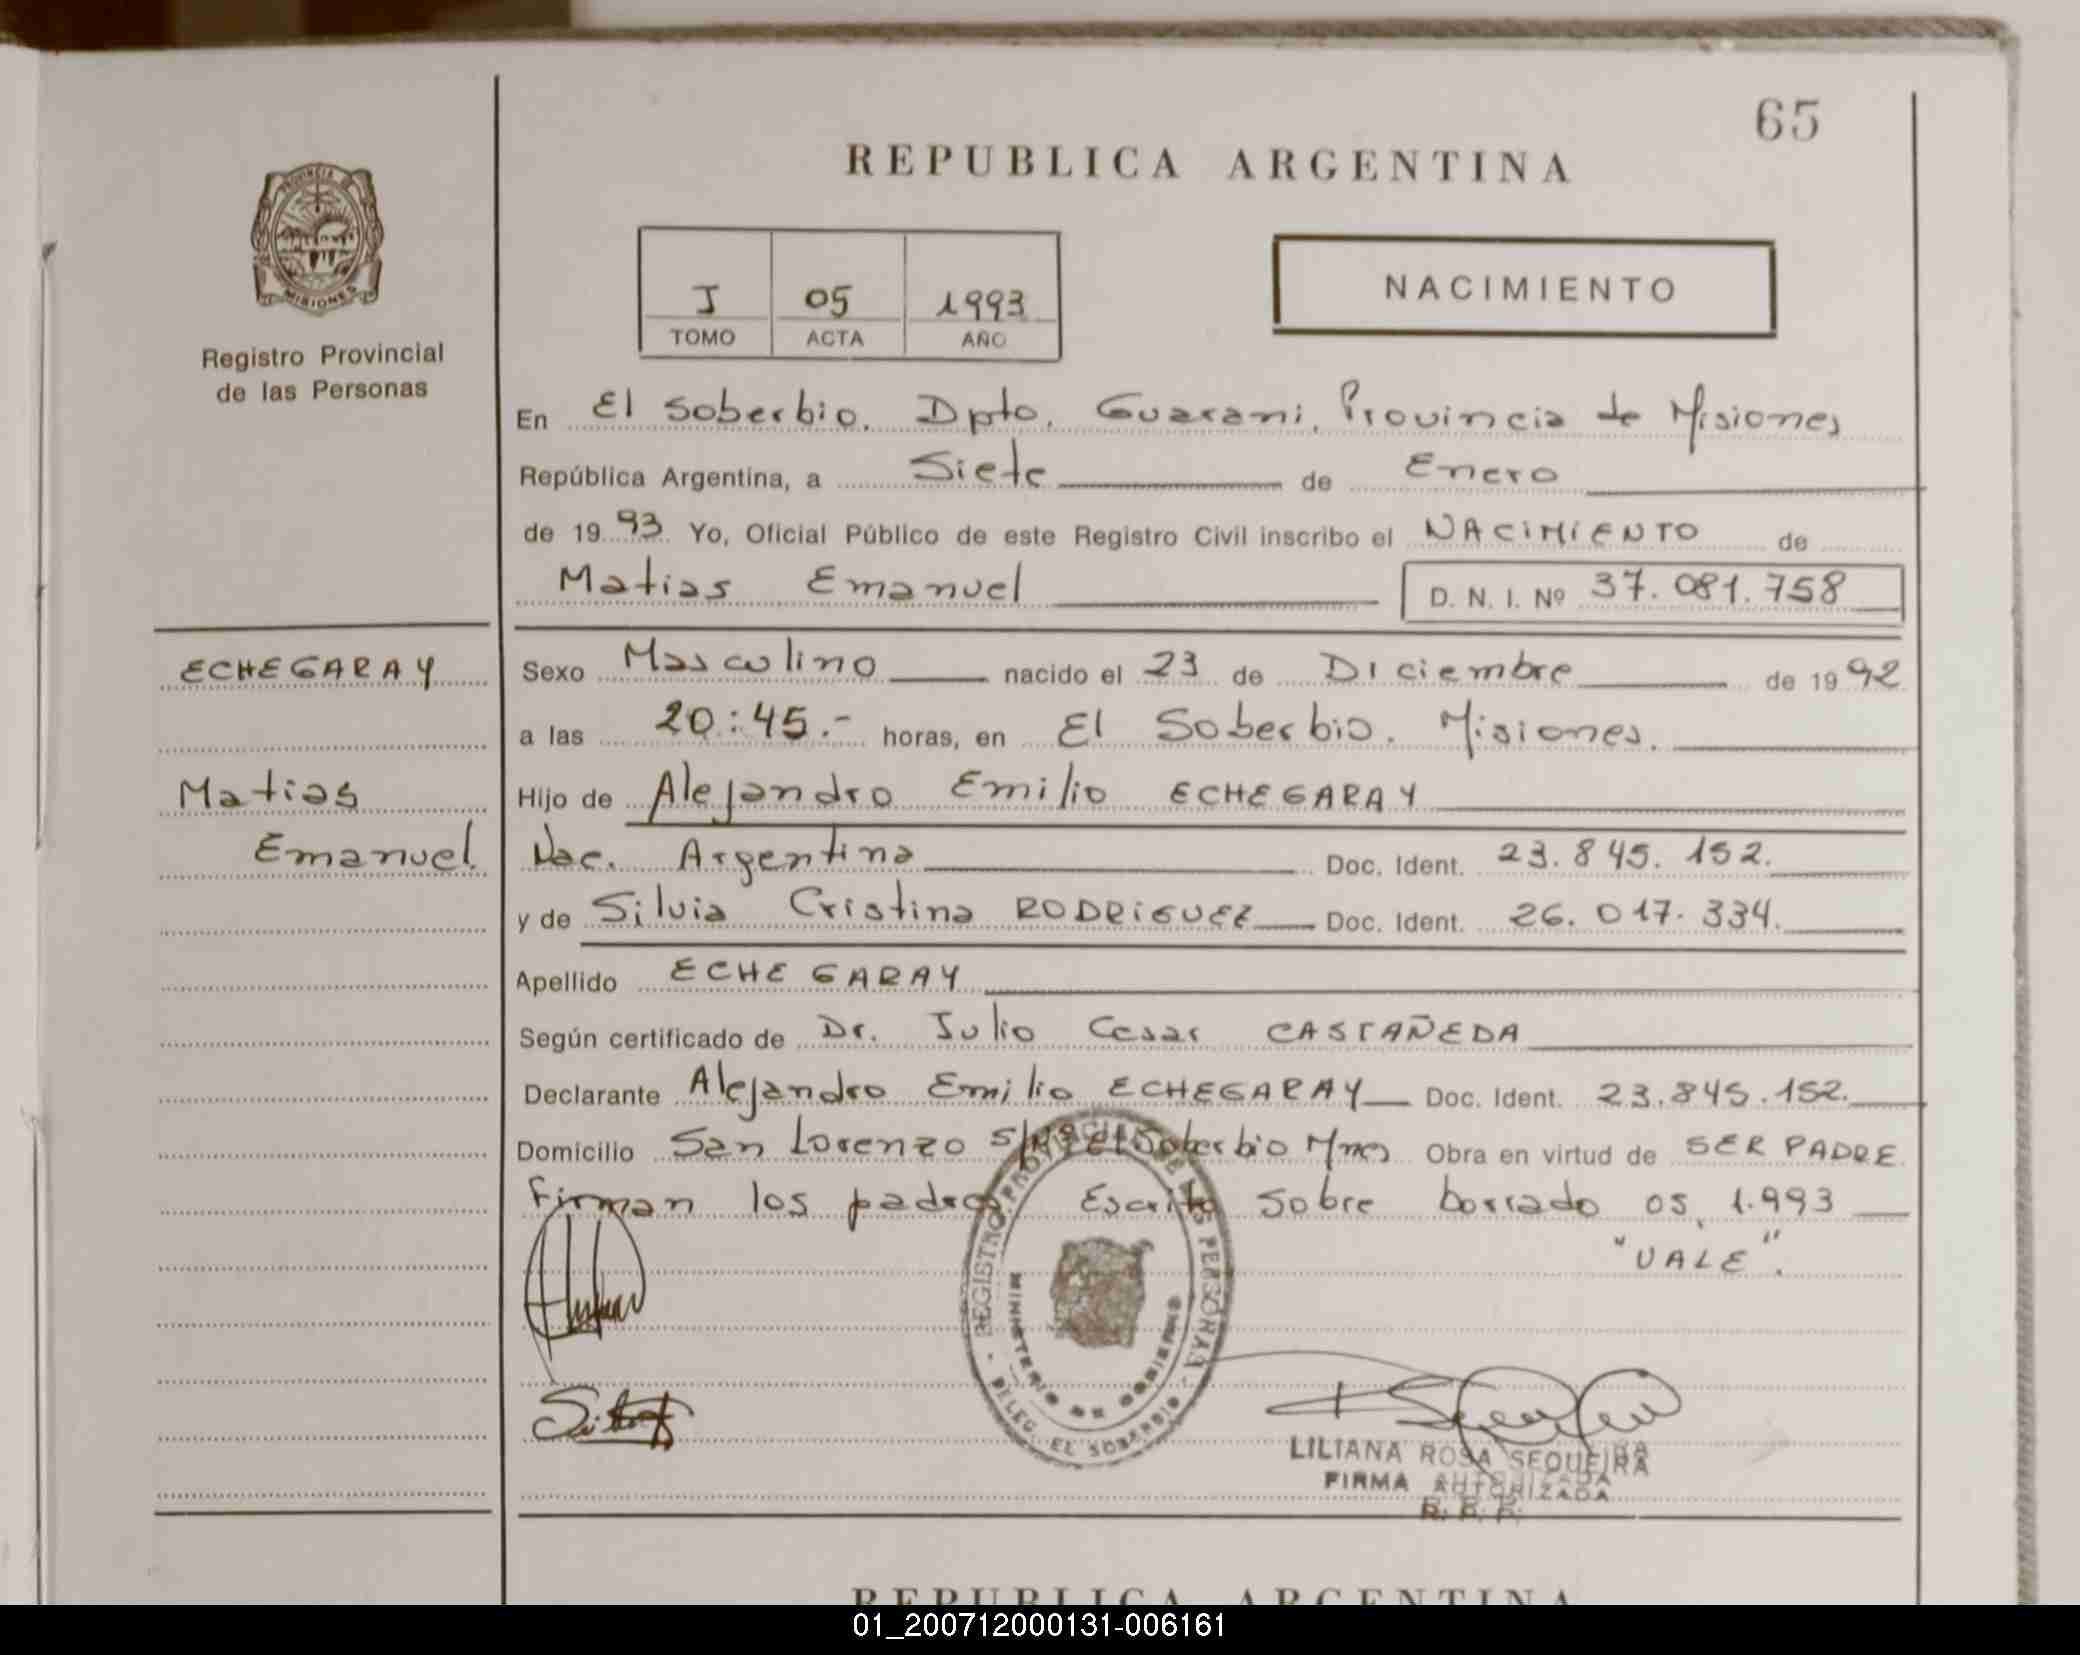 65
REPUBLICA ARGENTINA
PROVINCIA DE
MISIONES
Registro Provincial
de las Personas
I 05 1993
TOMO ACTA AÑO
NACIMIENTO
En El Soberbio, Dpto. Guarani, Provincia de Misiones
República Argentina, a Siete de Enero
de 1993 Yo, Oficial Público de este Registro Civil inscribo el NACIMIENTO de
Matias Emanuel D. N. I. Nº 37.081.758
ECHEGARAY
Matias
Emanuel.
Sexo Masculino nacido el 23 de Diciembre de 1992
a las 20:45.- horas, en El Soberbio. Misiones.
Hijo de Alejandro Emilio ECHEGARAY
Nac. Argentina Doc. Ident. 23.845.152.
y de Silvia Cristina RODRIGUEZ Doc. Ident. 26.017.334.
Apellido ECHEGARAY
Según certificado de Dr. Julio Cesar CASTAÑEDA
Declarante Alejandro Emilio ECHEGARAY Doc. Ident. 23.845.152.
Domicilio San Lorenzo S/Nº El Soberbio Mnes Obra en virtud de SER PADRE
Firman los padres Escrito sobre borrado 05, 1.993
"VALE".
REGISTRO PROVINCIAL DE LAS PERSONAS
MINISTERIO DE GOBIERNO
DELEG. EL SOBERBIO
LILIANA ROSA SEQUEIRA
FIRMA AUTORIZADA
R. P. P.
REPUBLICA ARGENTINA
01_200712000131-006161